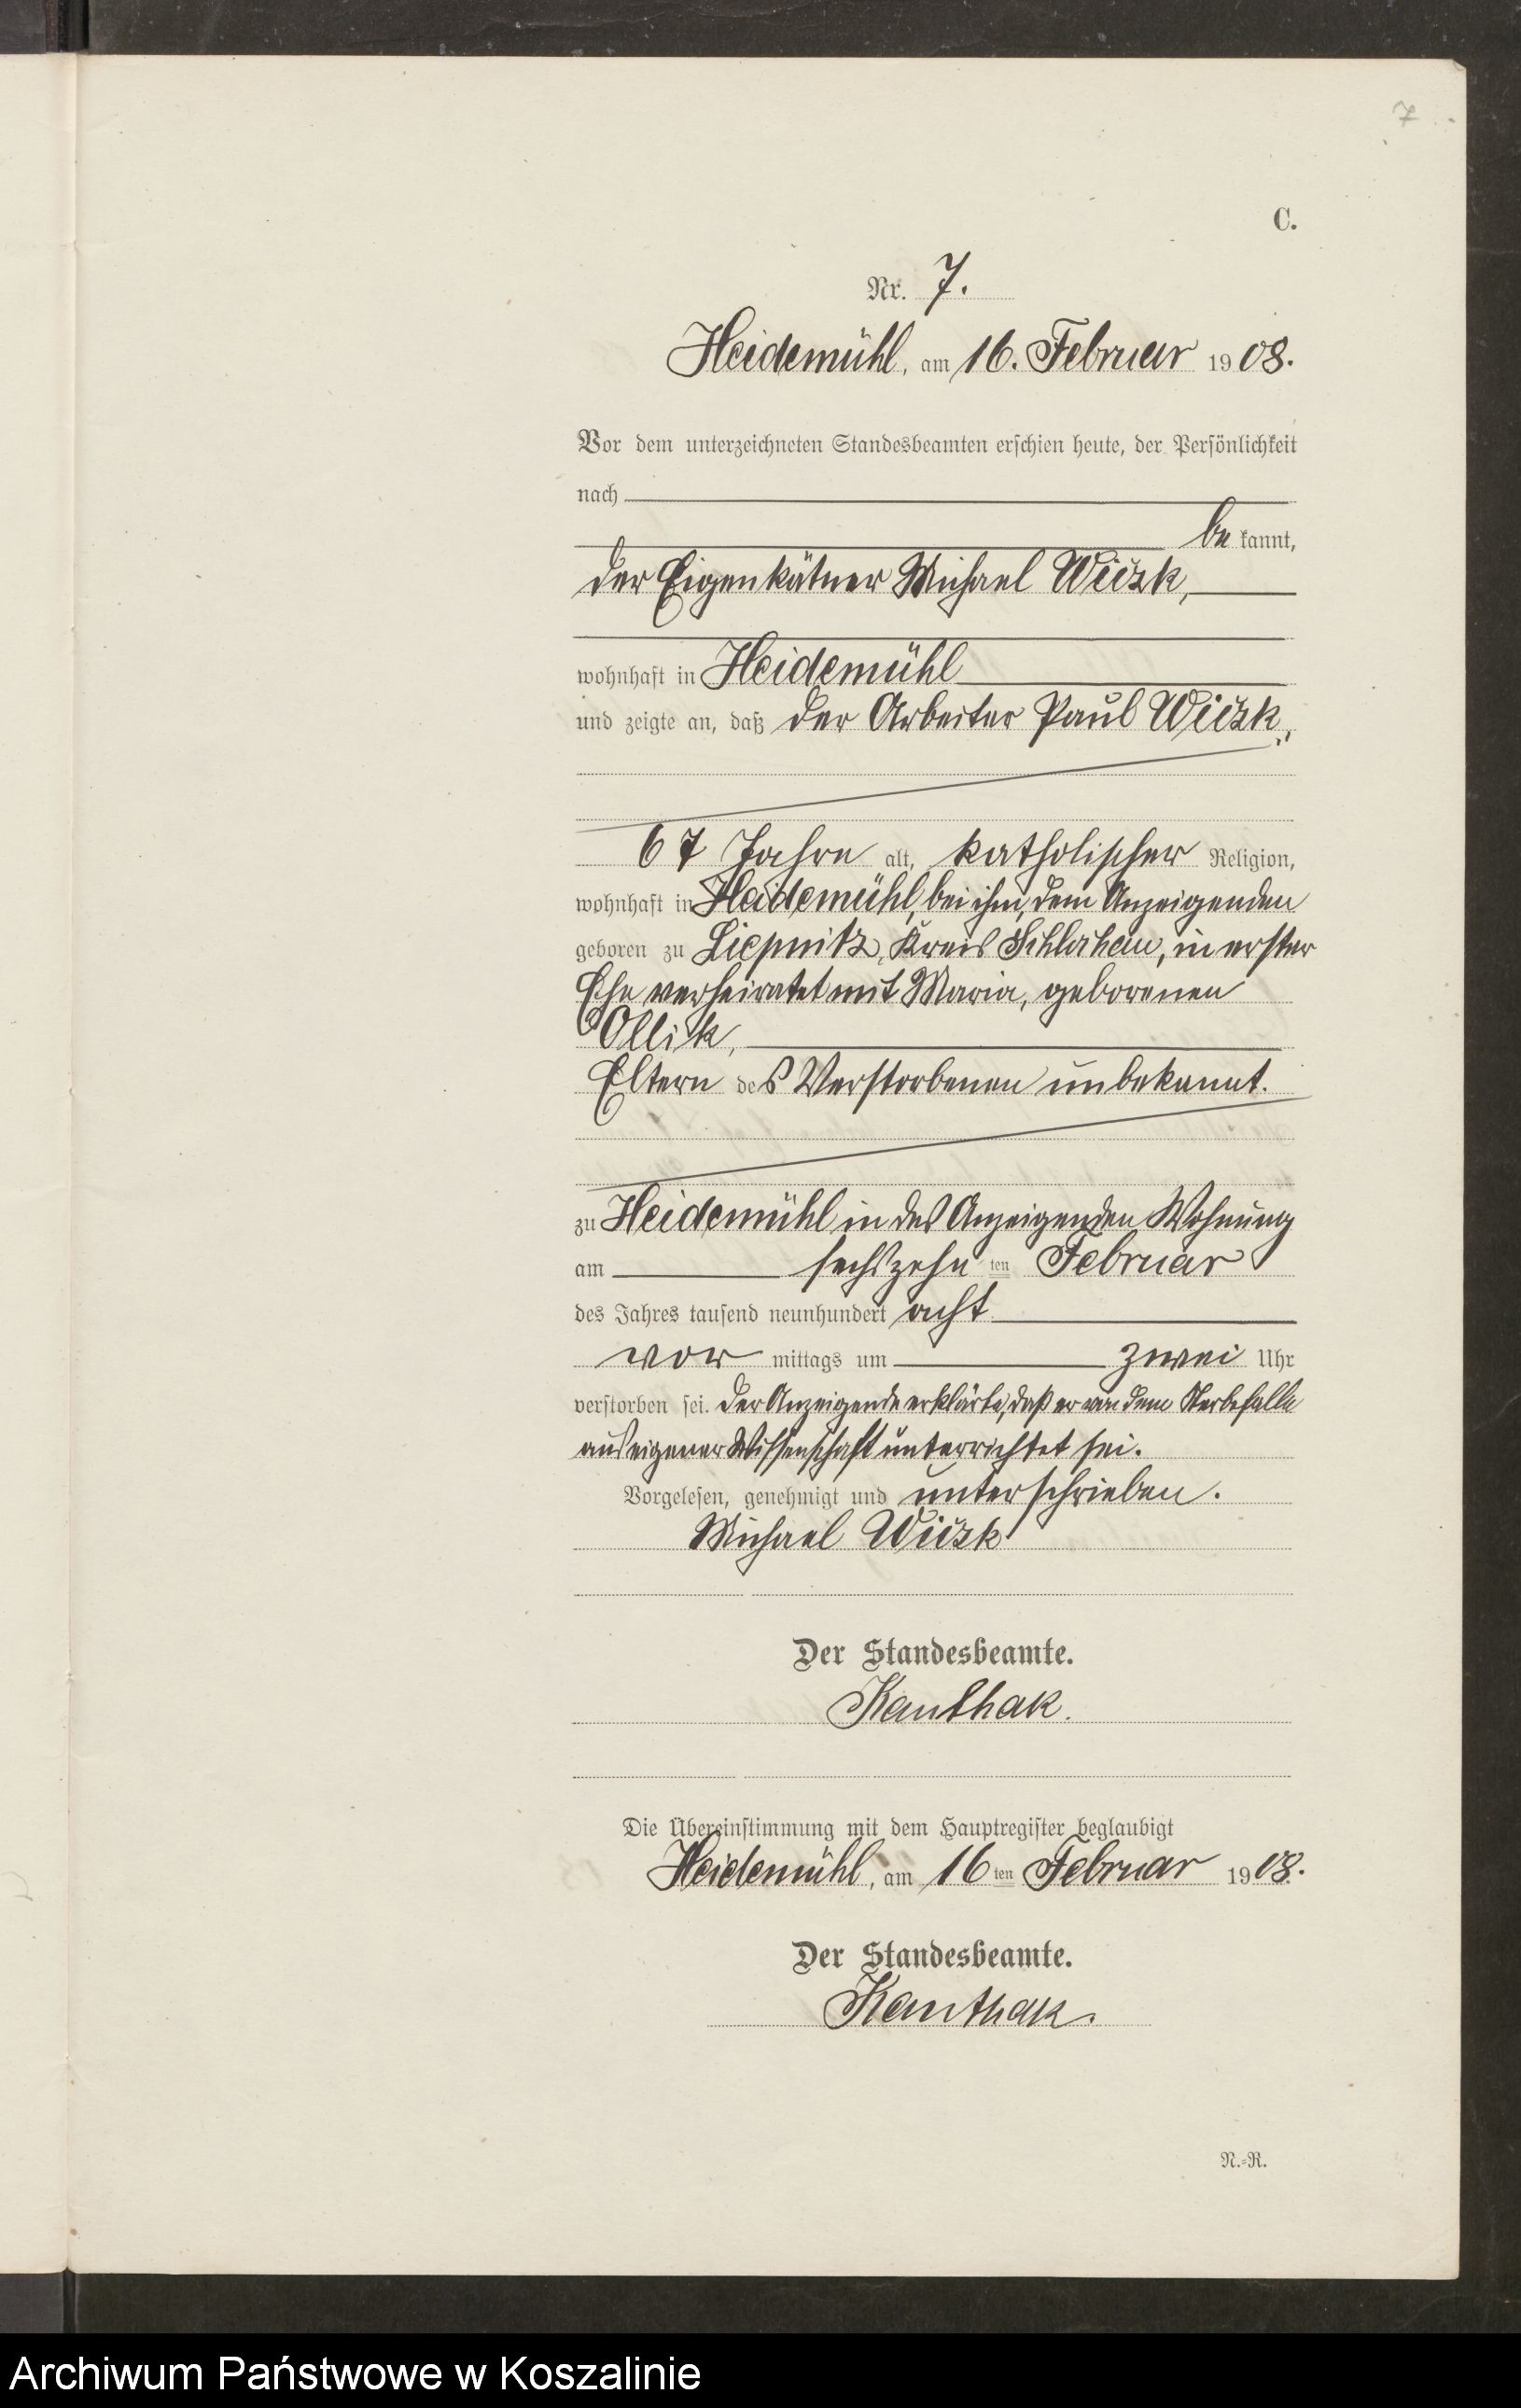 7
C.
Nr. 7.
Heidemühl, am 16. Februar 1908.
Vor dem unterzeichneten Standesbeamten erschien heute, der Persönlichkeit
nach
be kannt,
der Eigenkätner Michael
wohnhaft in Heidemühl
und zeigte an, daß der Arbeiter Paul
67 Jahre alt, katholischer Religion,
wohnhaft in Heidemühl, bei ihm, dem Anzeigenden
geboren zu Liepnitz, Kreis Schlochau, in erster
Ehe verheiratet mit Maria, geborenen
Ollik,
Eltern des Verstorbenen unbekannt.
zu Heidemühl in des Anzeigenden Wohnung
am sechszehn ten Februar
des Jahres tausend neunhundert acht
vor mittags um zwei Uhr
verstorben sei. Der Anzeigende erklärte, daß er von dem Sterbefalle
aus eigener Wissenschaft unterrichtet sei.
Vorgelesen, genehmigt und unterschrieben.
Michael
Der Standesbeamte.
Kanthak.
Die Übereinstimmung mit dem Hauptregister beglaubigt
Heidemühl, am 16ten Februar 1908.
Der Standesbeamte.
Kanthak.
N.-R.
Archiwum Państwowe w Koszalinie